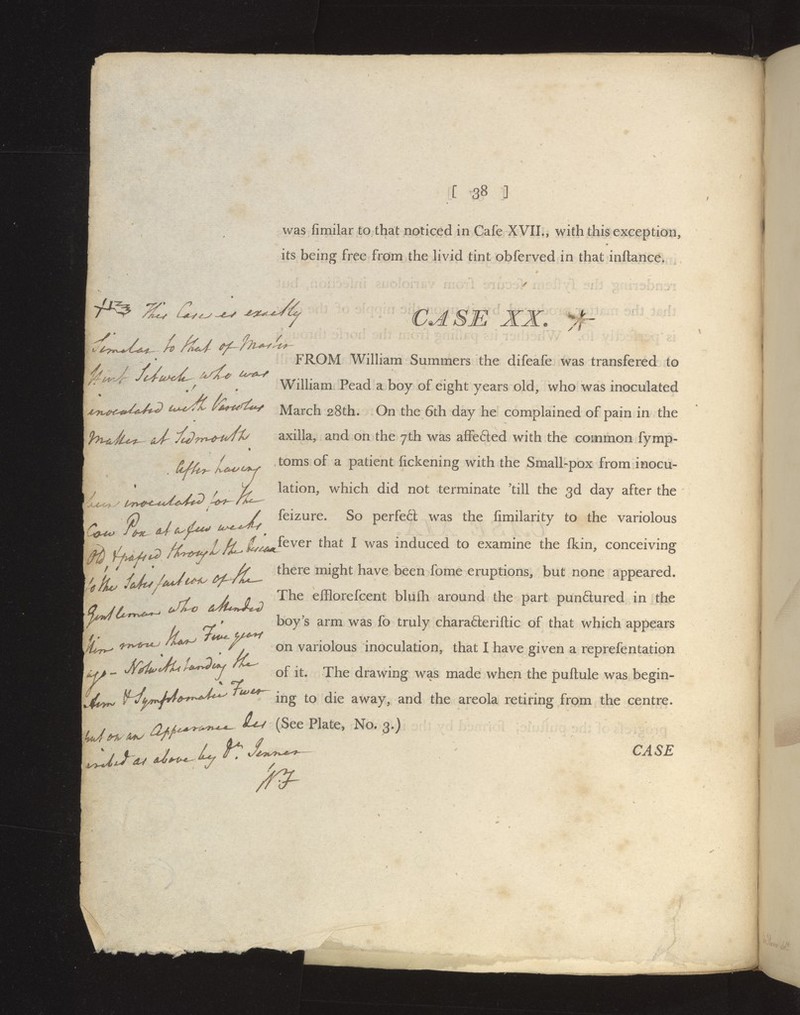 [ 38 ]
was ſimilar to that noticed in Caſe XVII., with this exception,
its being free from the livid tint obſerved in that inſtance.
CASE XX. *
FROM William Summers the diſeaſe was transfered to
William Pead a boy of eight years old, who was inoculated
March 28th. On the 6th day he complained of pain in the
axilla, and on the 7th was affected with the common ſymp-
toms of a patient ſickening with the Small-pox from inocu-
lation, which did not terminate ’till the 3d day after the
ſeizure. So perfect was the ſimilarity to the variolous
fever that I was induced to examine the ſkin, conceiving
there might have been ſome eruptions, but none appeared.
The effloreſcent bluſh around the part punctured in the
boy’s arm was ſo truly characteriſtic of that which appears
on variolous inoculation, that I have given a repreſentation
of it. The drawing was made when the puſtule was begin-
ing to die away, and the areola retiring from the centre.
(See Plate, No. 3.)
CASE
This Case is exactly
Similar to that of Master
Sitwell, who was
inoculated with Variolus
Matter at Sidmouth
After having
been inoculated for the
Cow Pox at a few weeks
old & passed through the disease
to the Satisfaction of the
Gentleman who attended
Him more than Five years
ago - Notwithstanding the
Arm & Symptomatic Fever
put on an Appearance des
cribed as above by Dr. Jenner